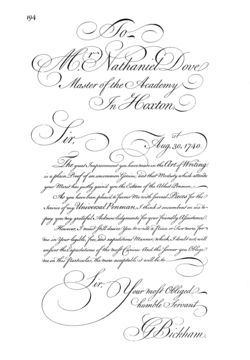 194
To
Mr. Nathaniel Dove
Master of the Academy
In Hoxton.
Sir, Aug. 30, 1740.
The great Improvement you have made in the Art of Writing
is a plain Proof of an uncommon Genius, and that Modesty which attends
your Merit has justly gain'd you the Esteem of the Ablest Penmen.
As you have been pleas'd to favour Me with several Pieces for the
of my Universal Penman, I think it incumbent on me to
pay you my grateful Acknowledgments for your friendly Assistance.
However, I must still desire You to a Piece or Two more for
me in Your and Manner, which I doubt not, will
the Expectations of the most Curious. And the you Oblige
me in this Particular, the more acceptable it will be to
Sir,
Your most Obliged
humble Servant
G Bickham.